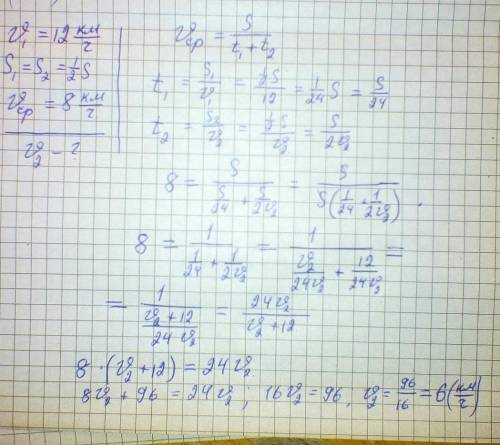 v₁ = 12 км/ч
S₁ = S₂ = ½S
vср = 8 км/ч
v₂ - ?
vср = S/(t₁ + t₂)
t₁ = S₁/v₁ = ½S/12 = 1/24 S = S/24
t₂ = S₂/v₂ = ½S/v₂ = S/2v₂
8 = S/(S/24 + S/2v₂) = S/(S(1/24 + 1/2v₂)).
8 = 1/(1/24 + 1/2v₂) = 1/(v₂/24v₂ + 12/24v₂) =
= 1/((v₂ + 12)/24v₂) = 24v₂/(v₂ + 12)
8 · (v₂ + 12) = 24v₂
8v₂ + 96 = 24v₂, 16v₂ = 96, v₂ = 96/16 = 6 (км/ч)